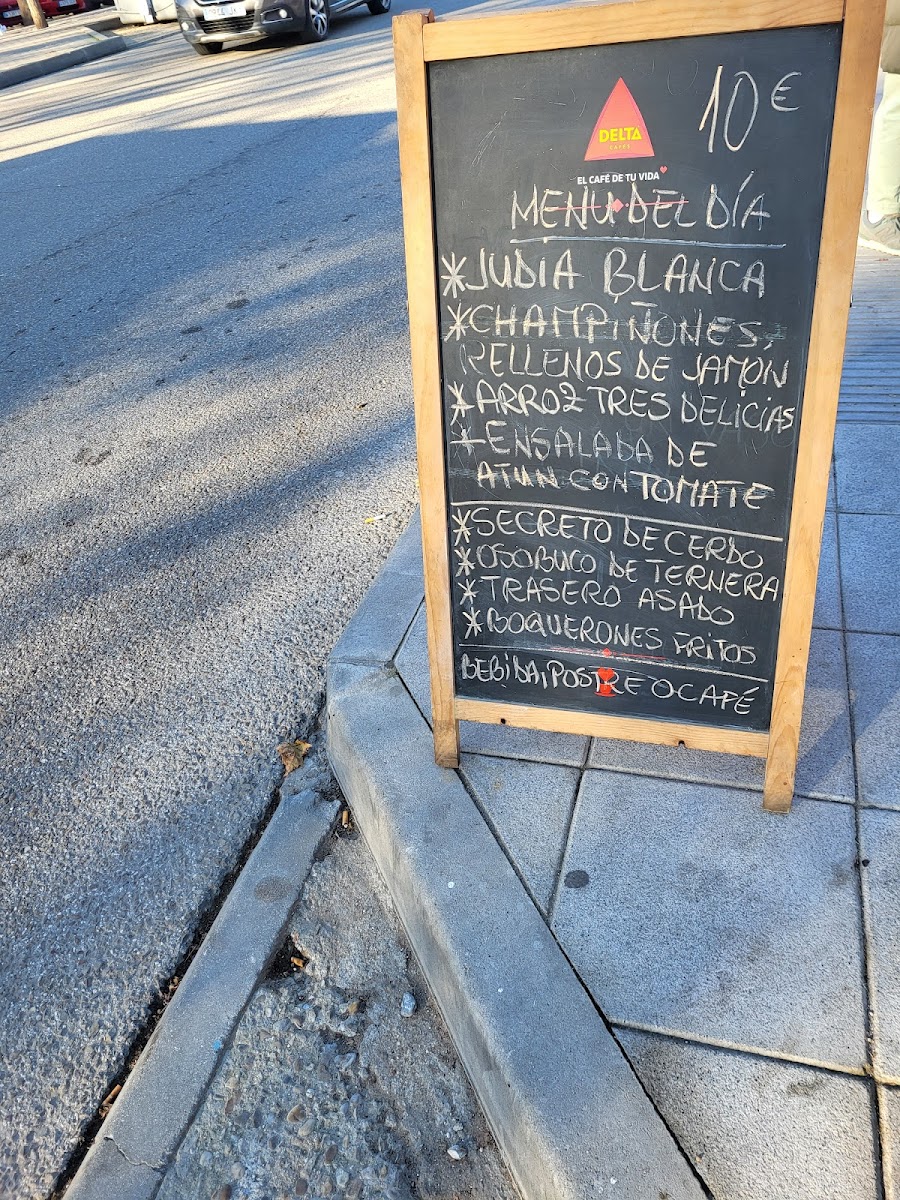 10€
DELTA
CAFÉS
EL CAFÉ DE TU VIDA
MENU DEL DÍA
*JUDIA BLANCA
*CHAMPIÑONES,
RELLENOS DE JAMÓN
*ARROZ TRES DELICIAS
*ENSALADA DE
ATUN CON TOMATE
*SECRETO DE CERDO
*OSOBUCO DE TERNERA
*TRASERO ASADO
*BOQUERONES FRITOS
BEBIDA, POSTRE O CAFÉ